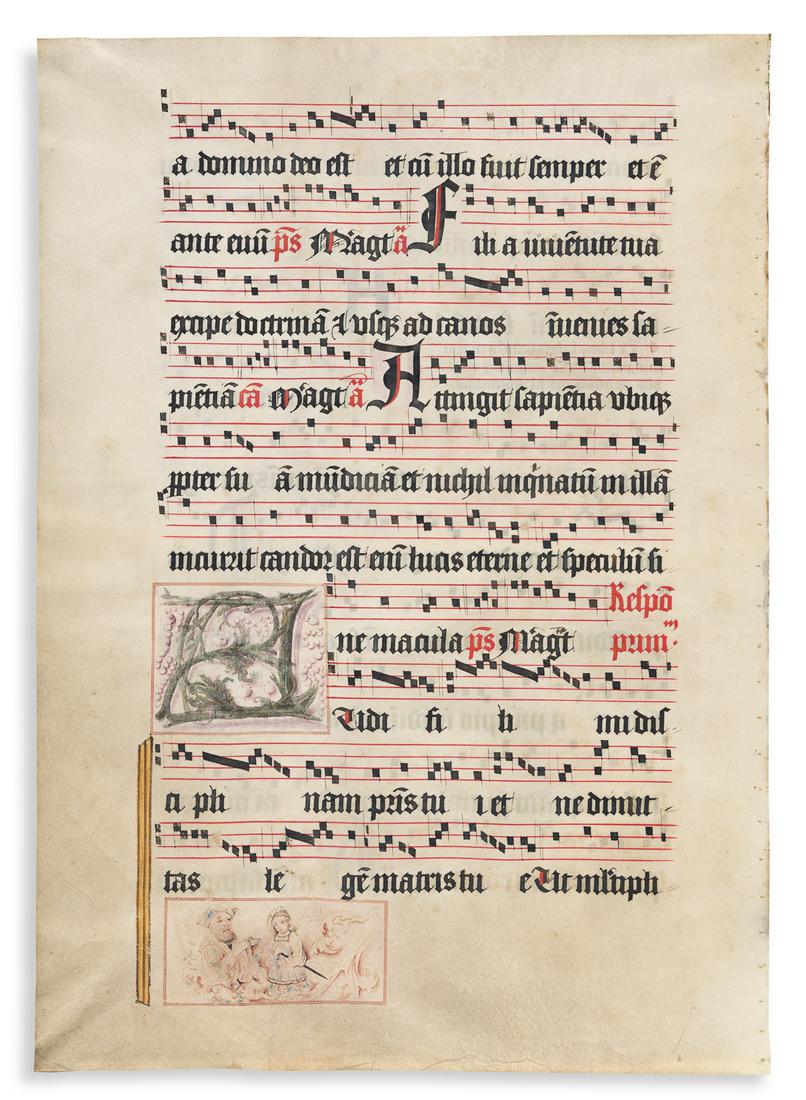 a domino deo est et cū illo fuit semper et ē
ante euū p̄s Magt ā Fili a iuuētute tua
excipe doctrinā ⁊ vsqꝫ ad canos īuenies sa
piētiā cā Magt ā Attingit sapiētia vbiqꝫ
ꝓpter su ā mūdiciā et nichil inqͥnatū in illā
incurrit candor est enī lucis eterne et speculū si
Respō
ne macula p̄s Magt prim
Audi fi li mi dis
ci pli nam pr̄is tu i et ne dimit
tas le gē matris tu e Ut